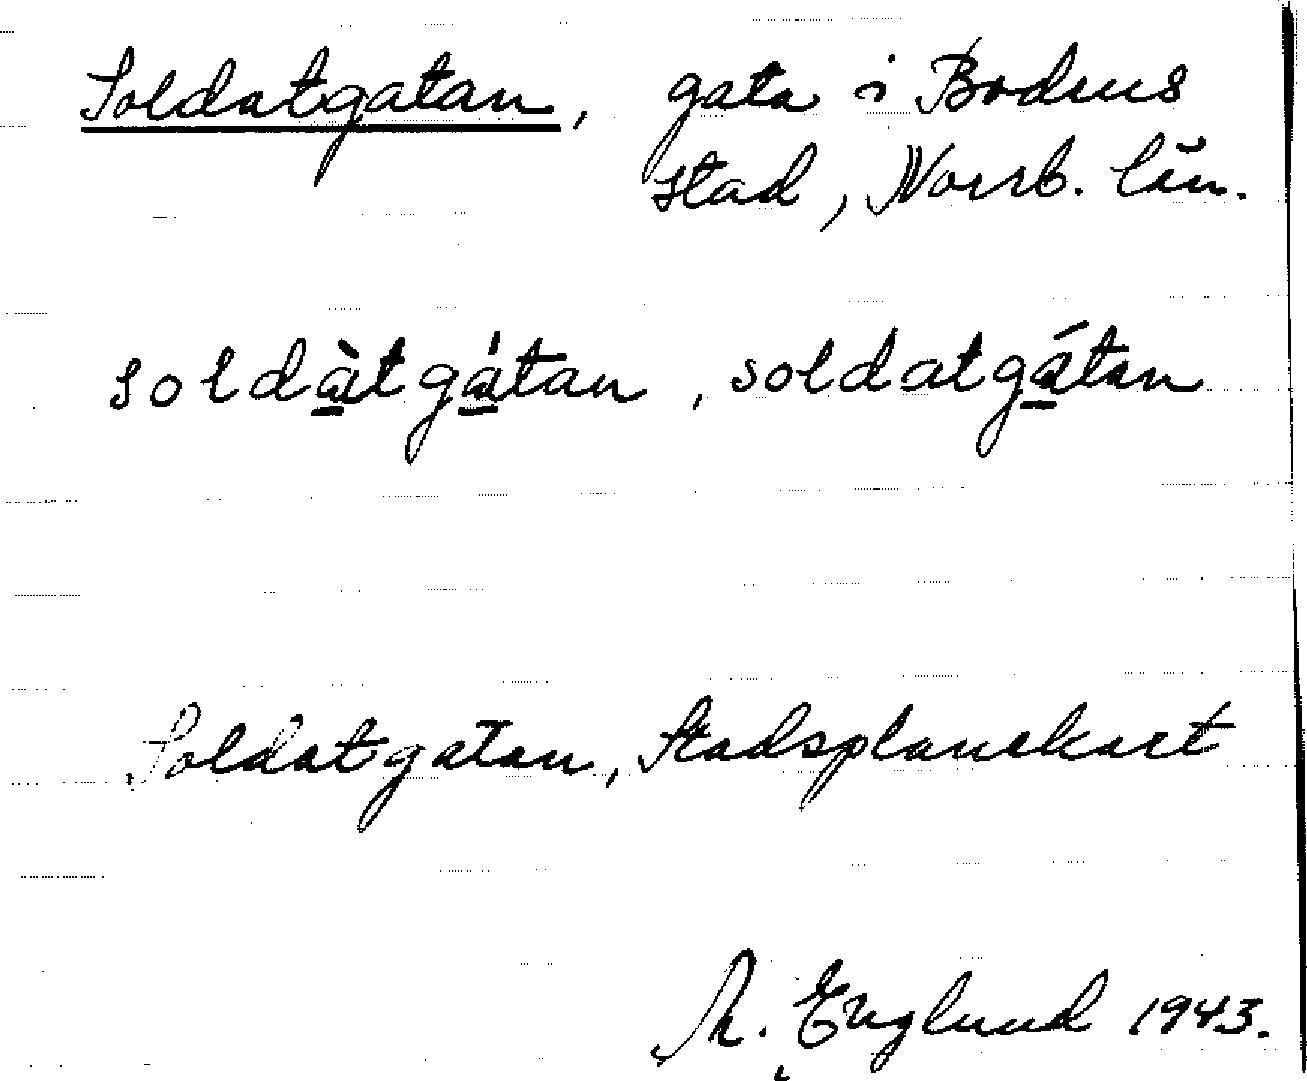 Soldatgatan, gata i Bodens
stad, Norrb. län.
soldàtgátan, soldatgátan
Soldatgatan, Stadsplanekart
Englund 1943.